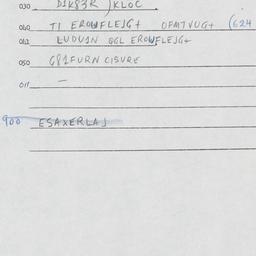 030 D1K83R JKLOC
060 TI EROWFLEJG+ OFMTVUG+ (624
061 LUDUIN QGL EROWFLEJG+
050 G81FURN CISVRE
011 —
900 ESAXERLAJ